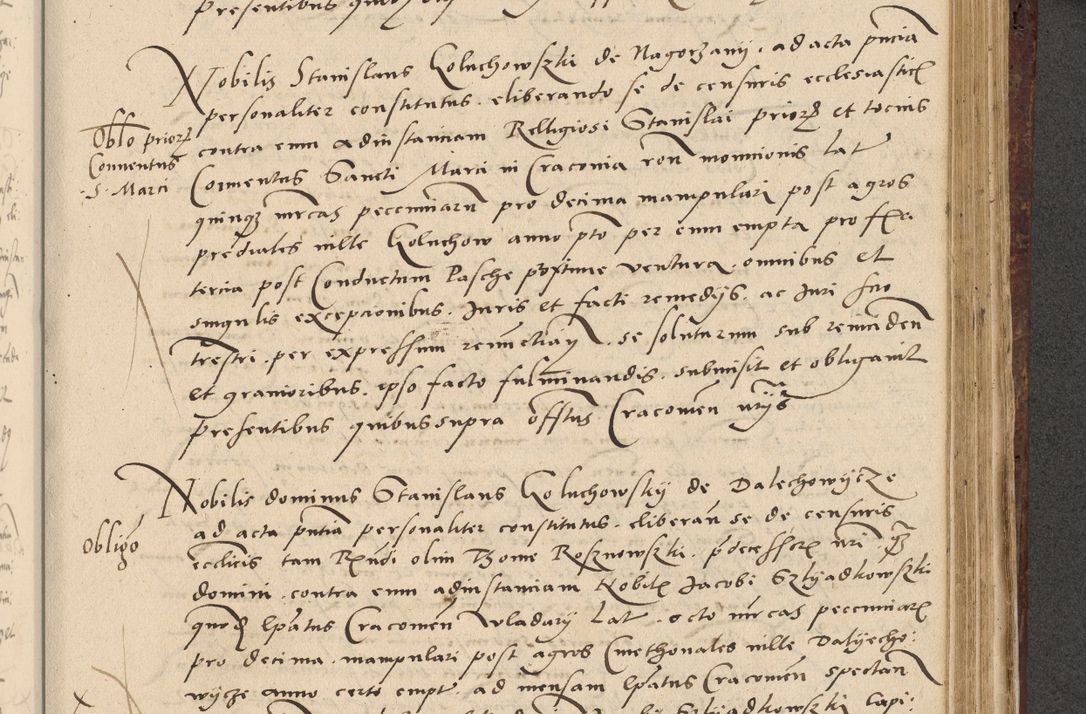 presentibus
Nobilis Stanislaus Goluchowszki de Nagorzanij. ad acta pntia
personaliter constitutus. eliberando se de censuris ecclesiastic
contra eum ad instanciam Relligiosi Stanislai prioris et tocius
Conuentus Sancti Marci in Craconia ron monicionis lat
quinq mrcas pecuniarum pro decima manipulari post agros
prediales ville Goluchow anno pto per eum empta pro
tercia post Conductum Pasche proxime ventura. omnibus et
singulis excepcionibus. Juris et facti remedijs. ac Juri suo
trestri. per expressum renunctian. se soluturum sub
et grauioribus. ipso facto fulminandis. submisit et obligauit
presentibus quibus supra offtus Cracouien
Oblo prior
Conuentus
S. Marci
Nobilis dominus Stanislaus Goluchowskij de Dalechowijcze
ad acta pntia personaliter constitutus. eliberan se de censuris
ecclicis tam Rndi olim Thome Rosznowszki. predecessoris nri
domini. contra eum ad instanciam Nobilis Jacobi Szlijadkowszki
quond Epatus Cracouien vladarij lat. octo mrcas pecuniar
pro decima. manipulari post agros Cmethonales ville Dalijecho:
wijcze anno certo empt. ad mensam Epatus Cracouien spectan
Szlijadkowszki lapi:
Obligo